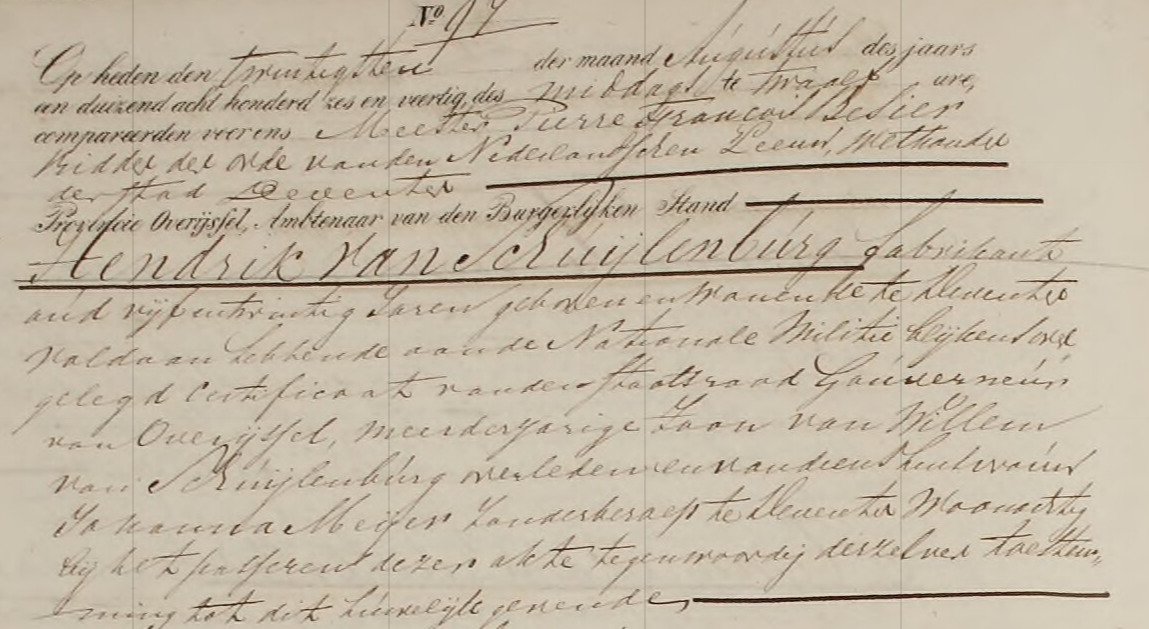 No 97
Op heden den twintigsten der maand Augústús des jaars
een duizend acht honderd zes en veertig, des middags te twaalf ure,
compareerden voor ons Meester Pierre François Besier
Ridder der orde van den Nederlandschen Leeuw, Wethouder
der stad Deventer
Provincie Overijssel, Ambtenaar van den Burgerlijken Stand
Hendrik van Schúijlenbúrg fabrikant
oud vijfentwintig Jaren geboren en wonende te Deventer
voldaan hebbende aan de Nationale Militie blijkens over
gelegd Certificaat van den Staatsraad Goúverneúr
van Overijssel, meerderjarige Zoon van Willem
van Schúijlenbúrg overleden en van diens huisvroúw
Johanna Meijer zonder beroep te Deventer Woonachtig
bij het passeren dezer akte tegenwoordig derzelver toestem„
ming tot dit húwelijk gevende,